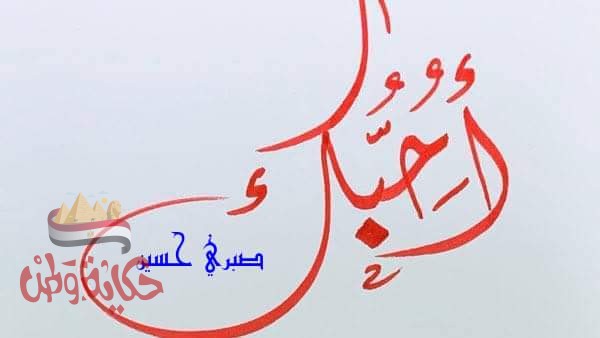 أُحِبُّكَ
صبري حسين
حكاية وطن